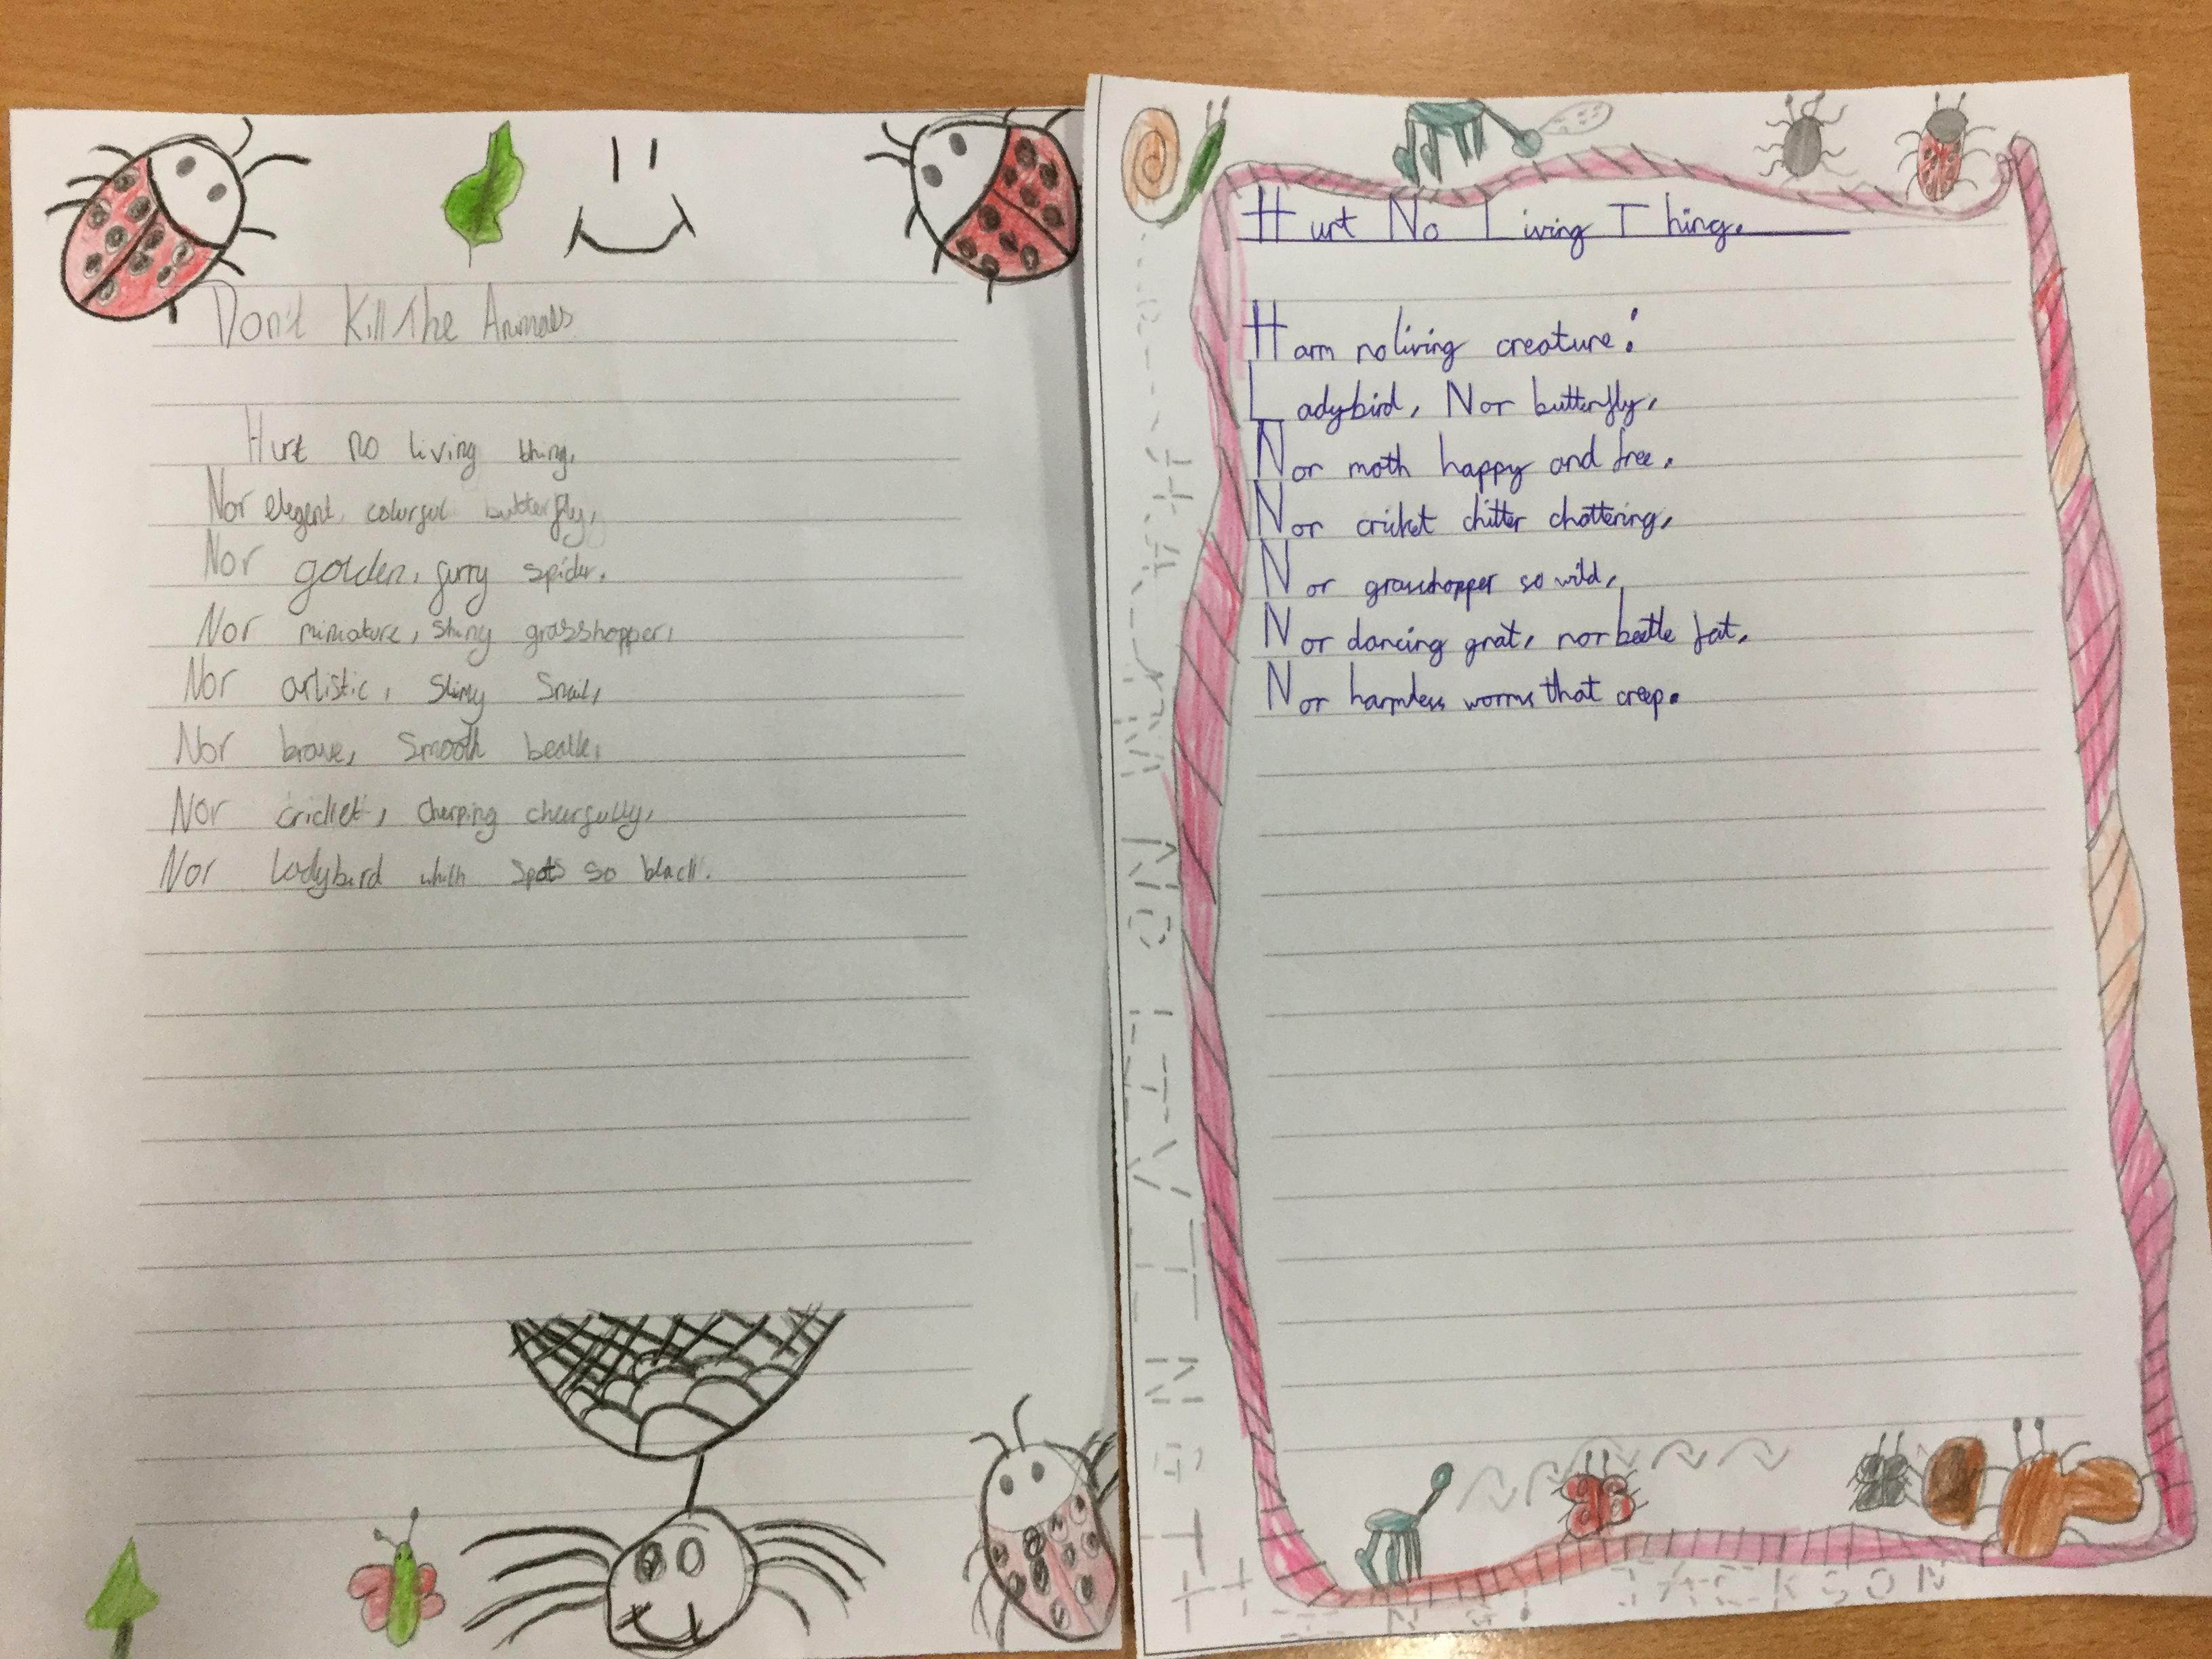 Don't Kill The Animals
Hurt no living thing,
Nor elegent, colurful butterfly,
Nor golden, furry spider.
Nor miniature, shiny grasshopper,
Nor artistic, slimy snail,
Nor brave, smooth beatle,
Nor cricket, cherping chearfully,
Nor Ladybird whith spots so black.
Hurt No Living Thing.
Harm no living creature:
Ladybird, Nor butterfly,
Nor moth happy and free.
Nor cricket chitter chattering,
Nor grasshopper so wild,
Nor dancing gnat, nor beetle fat,
Nor harmless worms that creep.
JACKSON